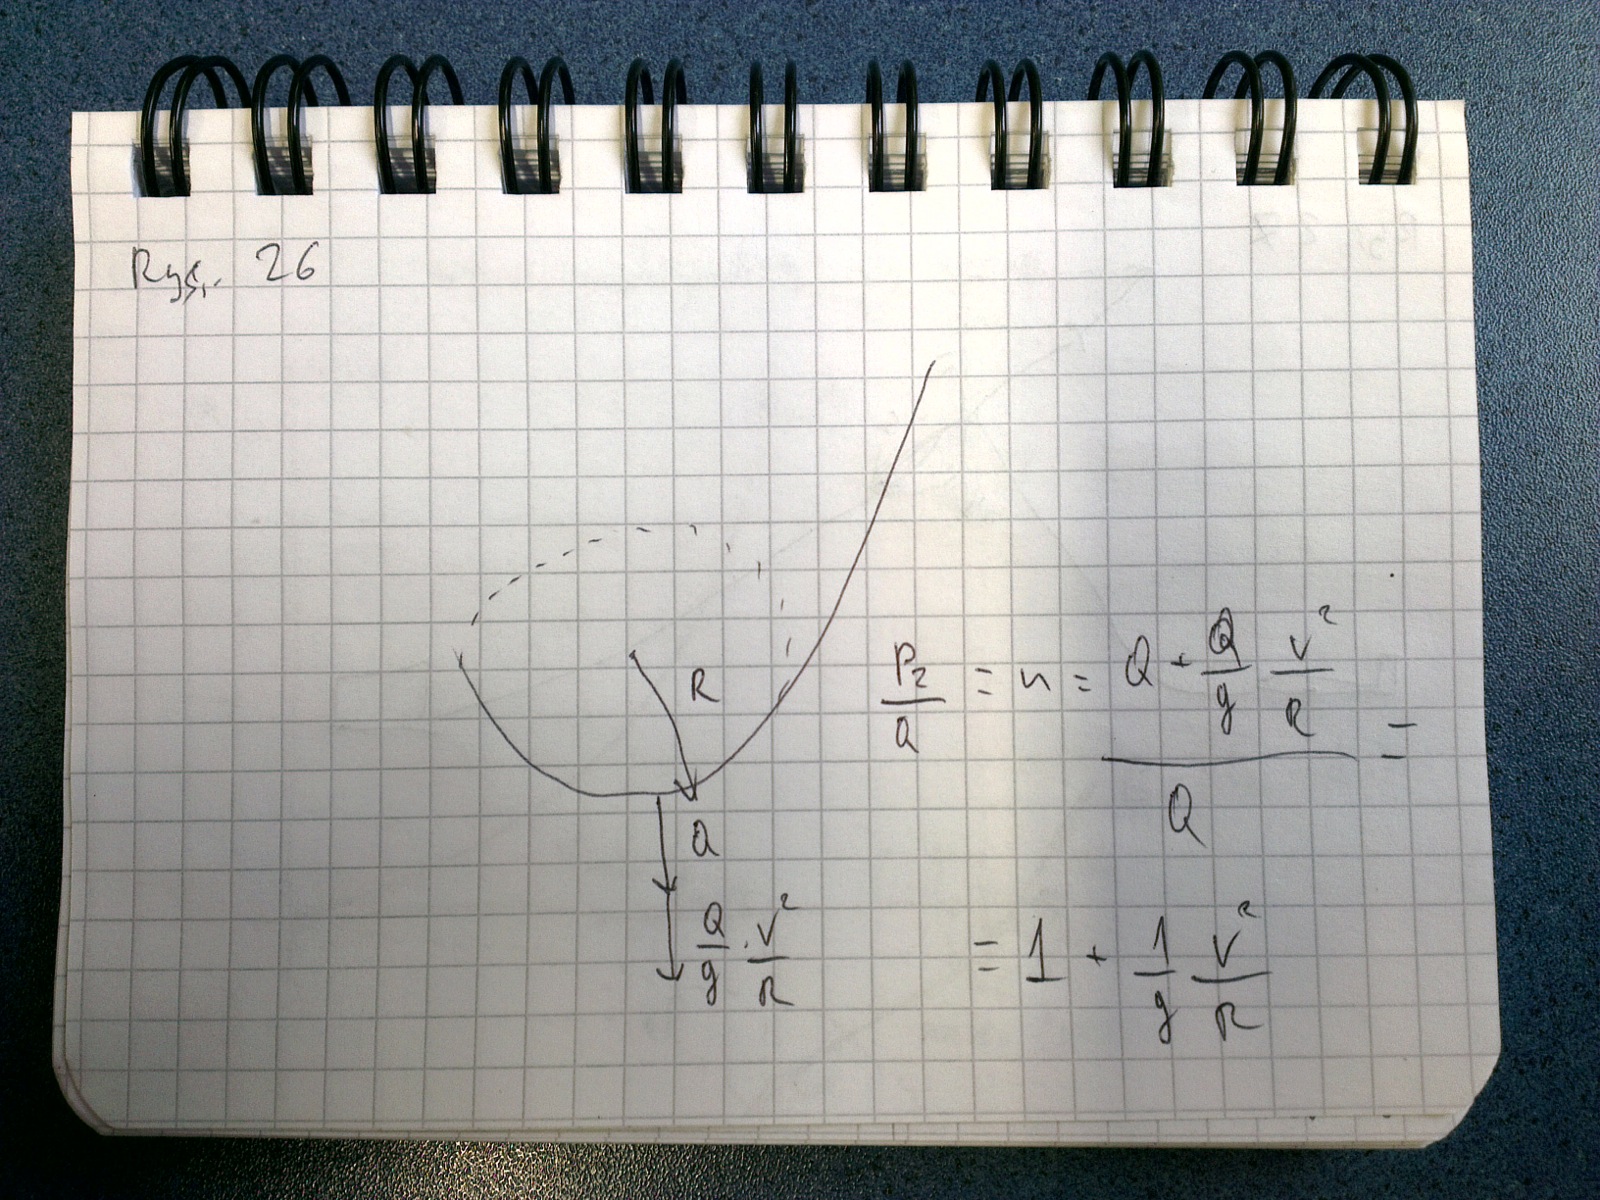 Rys. 26
R
Q
Q/g · v²/R
Pz/Q = n = (Q + Q/g v²/R)/Q =
= 1 + 1/g v²/R